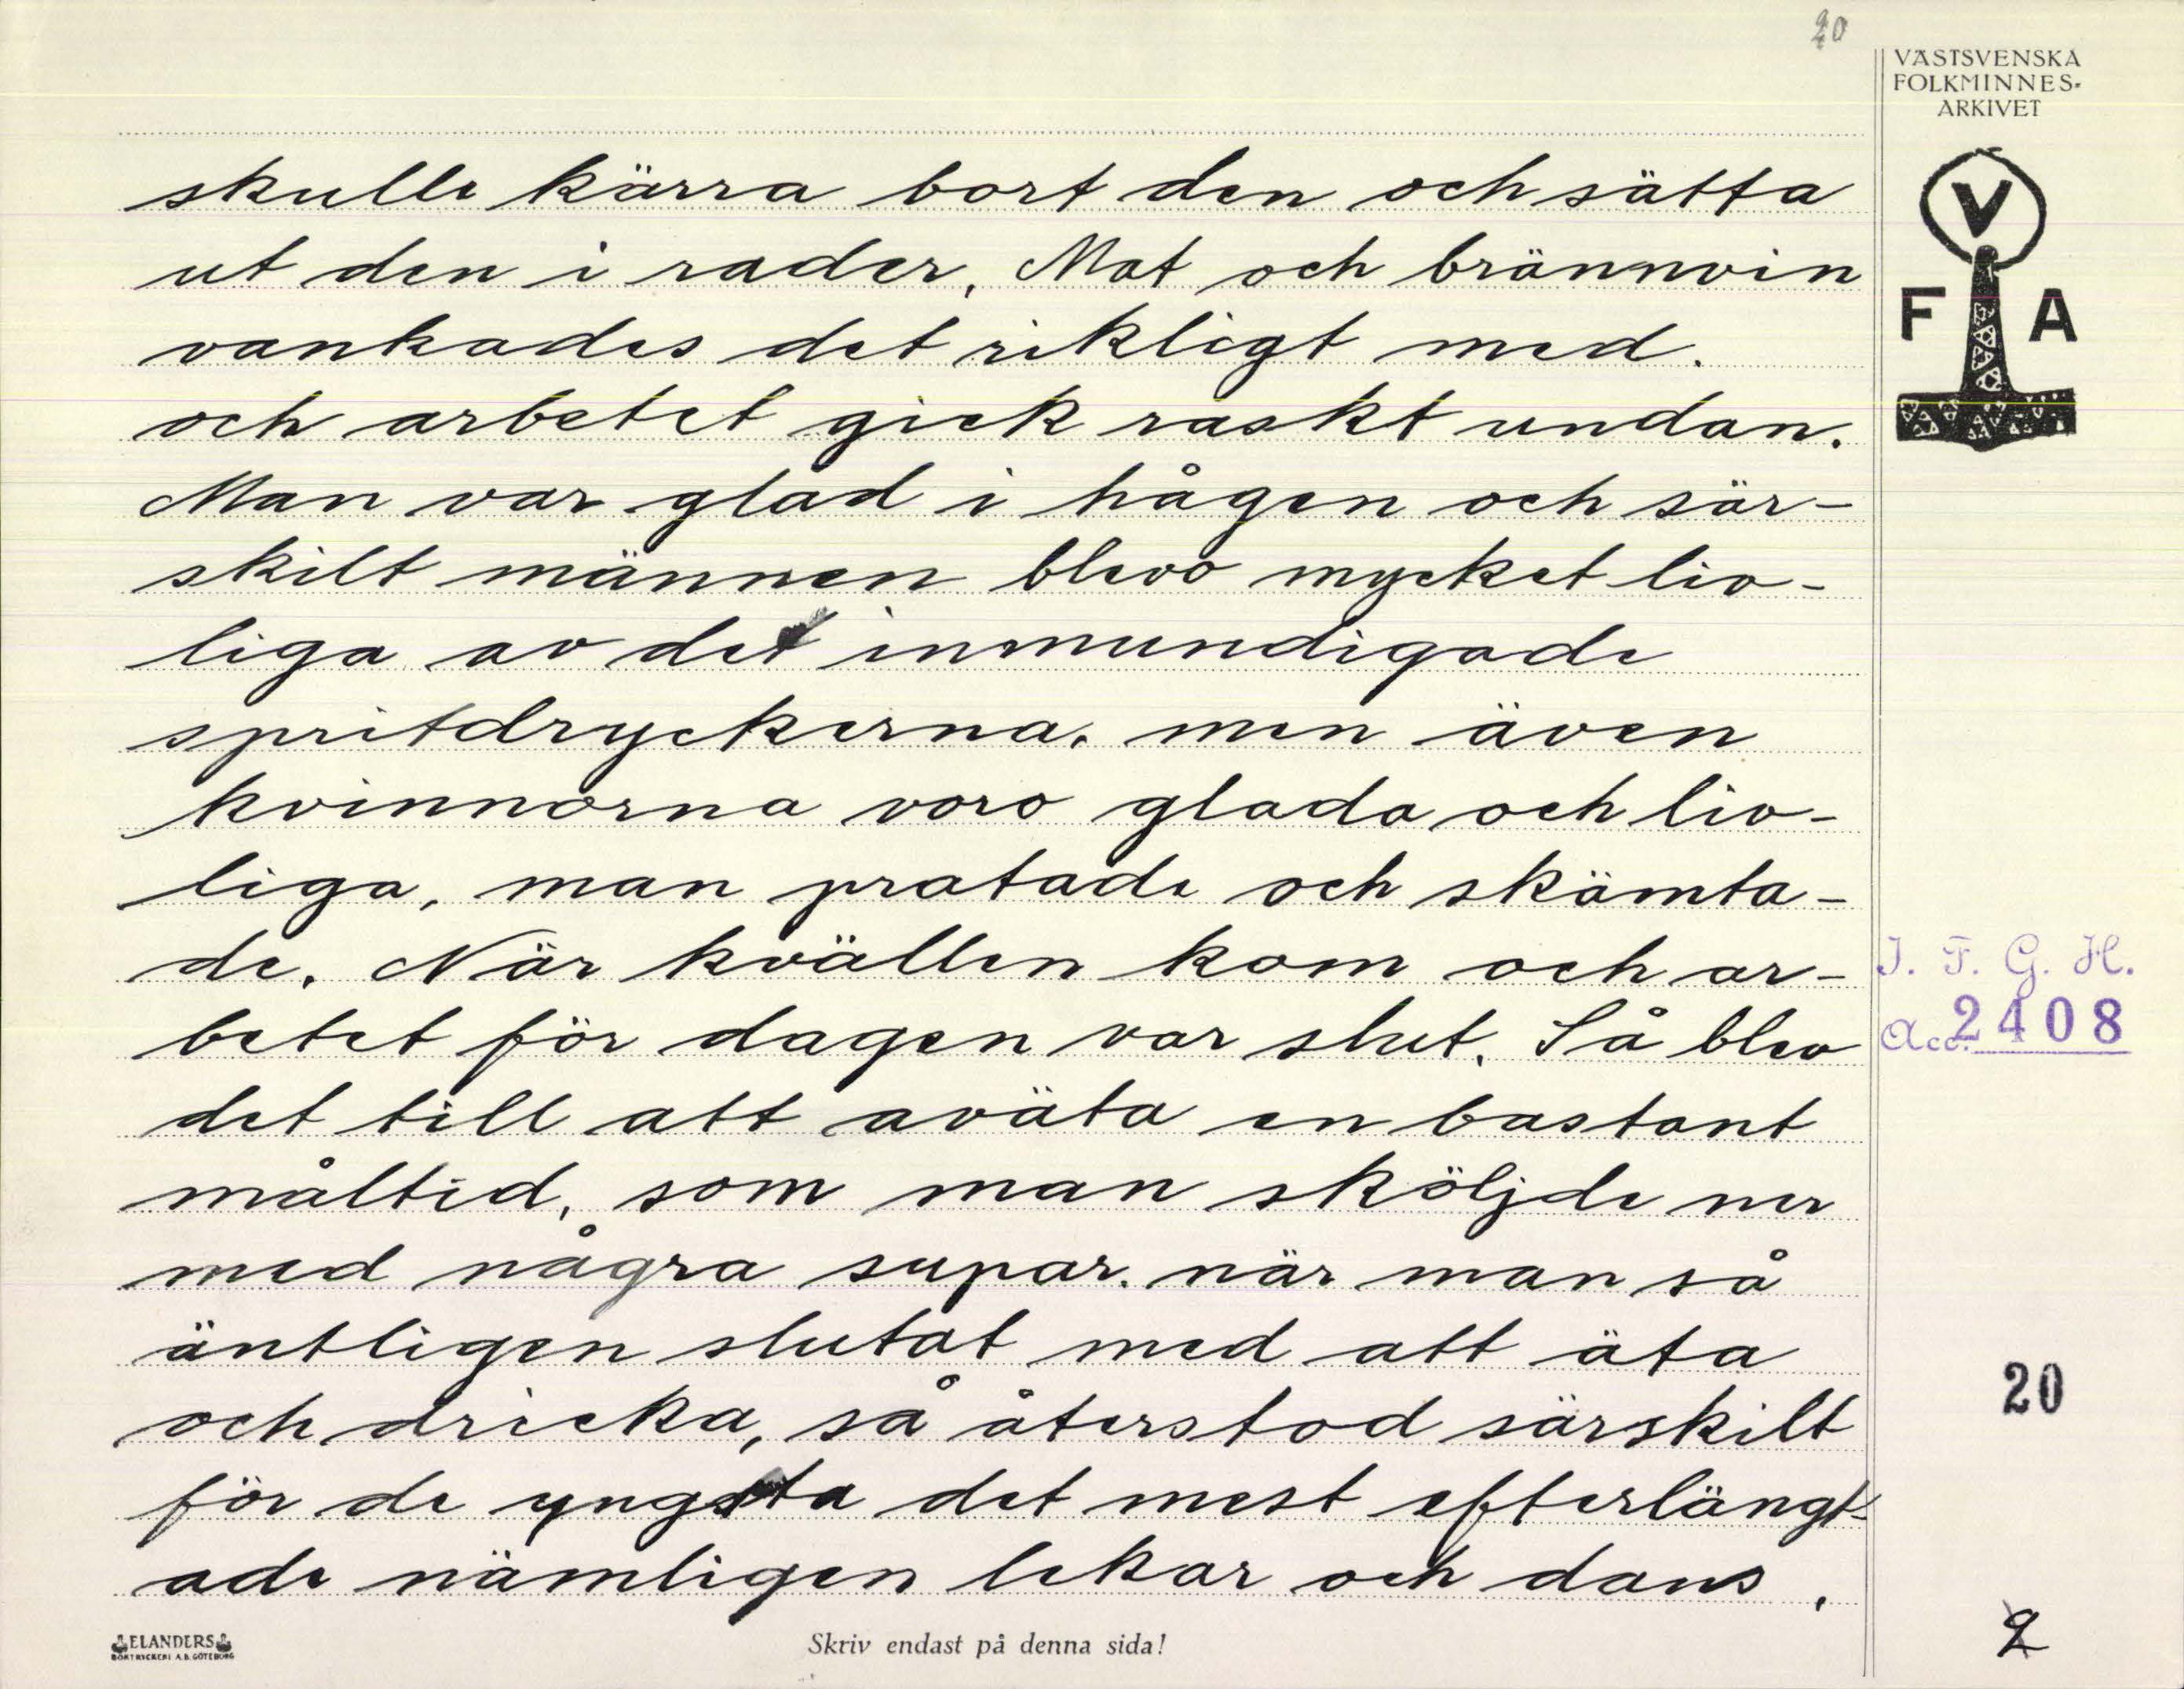 20
VÄSTSVENSKA
FOLKMINNES-
ARKIVET
V
F A
skulle kärra bort den och sätta
ut den i rader, Mat och brännvin
vankades det rikligt med.
och arbetet gick raskt undan.
Man var glad i hågen och sär-
skilt männen blevo mycket liv-
liga av det inmundigade
spritdryckerna, men även
kvinnorna voro glada och liv-
liga, man pratade och skämta-
de. När kvällen kom och ar-
betet för dagen var slut. Så blev
det till att aväta en bastant
måltid, som man sköljde ner
med några supar. när man så
äntligen slutat med att äta
och dricka, så återstod särskilt
för de yngsta det mest efterlängt-
ade nämligen lekar och dans,
I. F. G. H.
Acc. 2408
20
2
ELANDERS
BOKTRYCKERI A.B. GÖTEBORG
Skriv endast på denna sida!